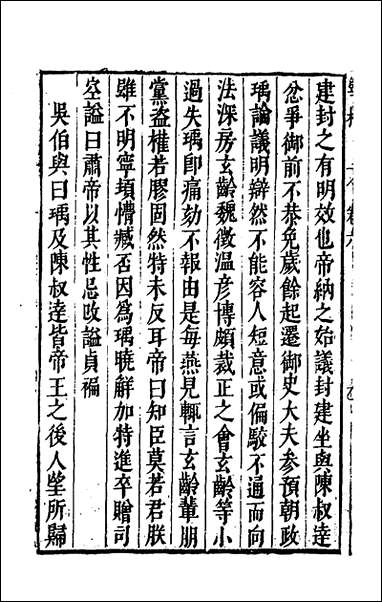 建封之有明效也帝納之始議封建坐與陳叔達
忿爭御前不恭免歲餘起遷御史大夫參預朝政
瑀論議明辯然不能容人短意或偏駁不通而向
法深房玄齡魏徵溫彥博頗裁正之會玄齡等小
過失瑀卽痛劾不報由是每燕見輒言玄齡輩朋
黨盗權若膠固然特未反耳帝曰知臣莫若君朕
雖不明寧頊懵臧否因爲瑀曉解加特進卒贈司
空諡曰肅帝以其性忌改諡貞褊
吳伯與曰瑀及陳叔達皆帝王之後人望所歸